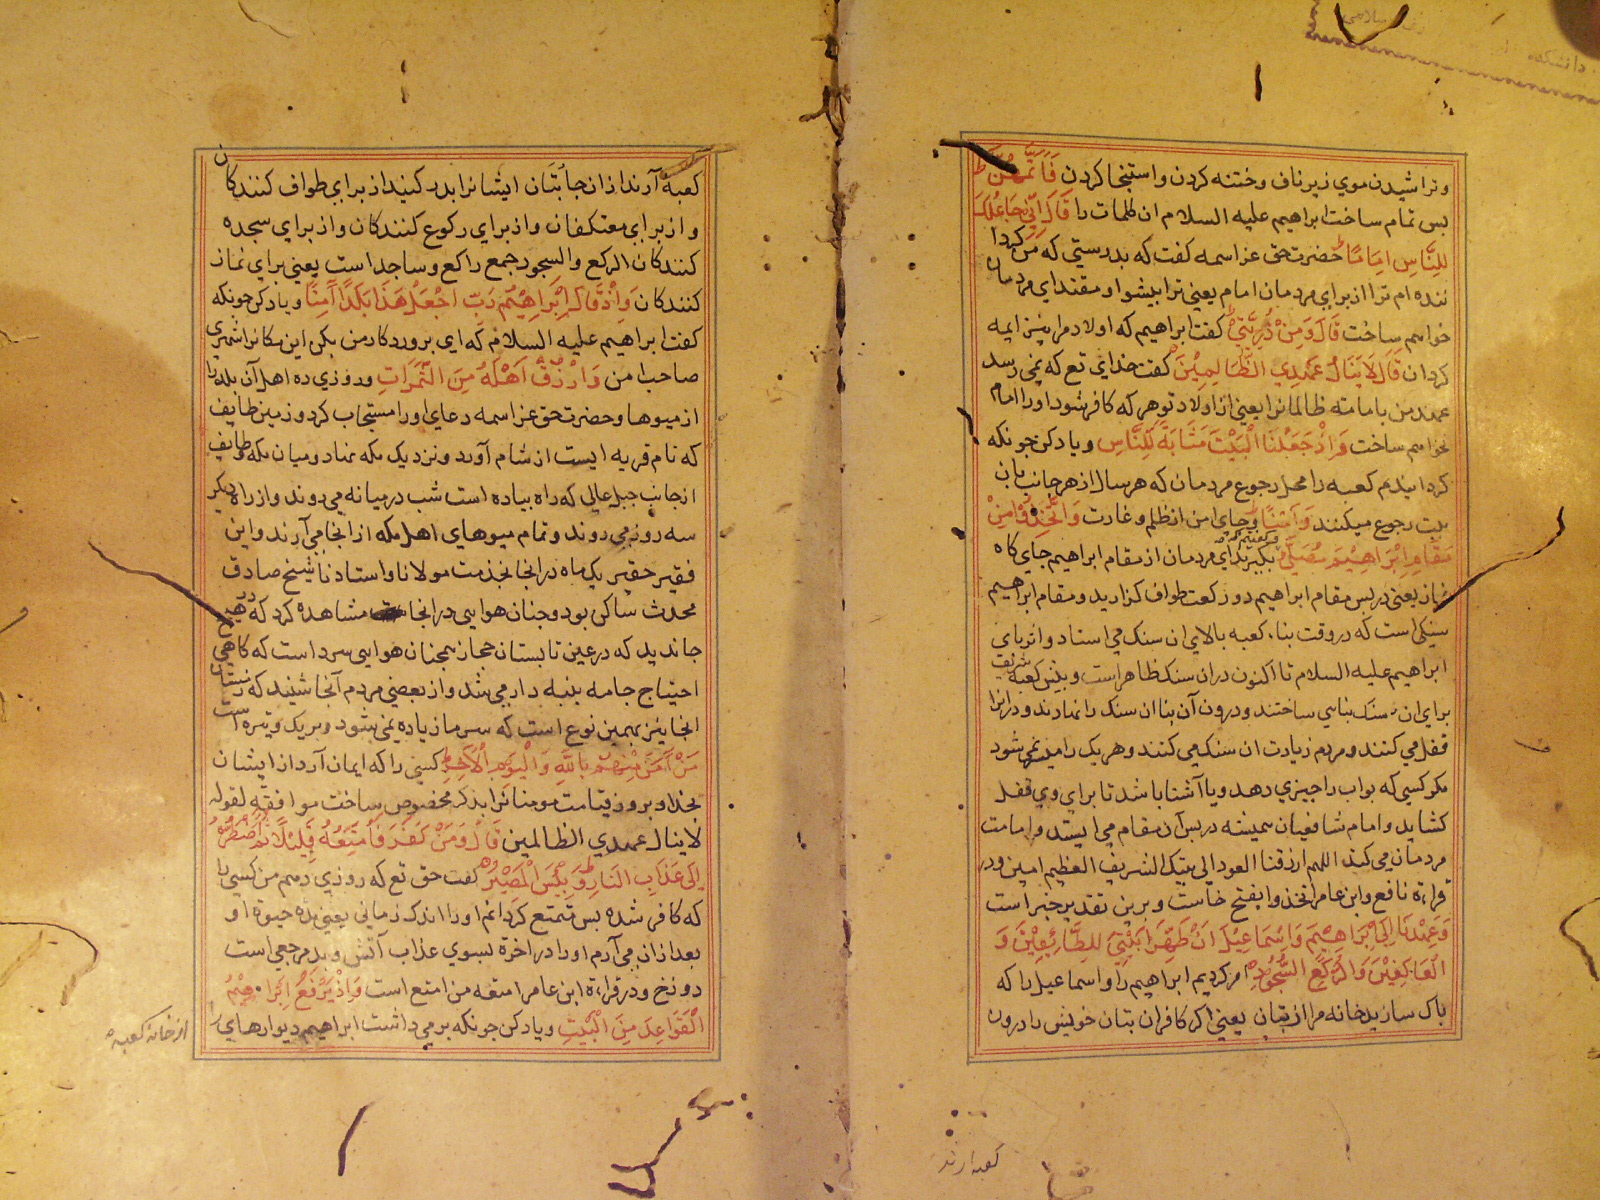 و تراشیدن موی زیر ناف و ختنه کردن و استنجا کردن فَاَتَمَّهُنَّ ط
بس تمام ساخت ابراهیم علیه السلام ان کلمات را قَالَ اِنّی جَاعِلُکَ
لِلنَّاسِ اِمَامًا حضرت حق عز اسمه کفت که بدرستی که من کردا
ننده ام ترا از برای مردمان امام یعنی ترا بیشوا و مقتدای مردمان
خواهم ساخت قَالَ وَمِنْ ذُرِّیَّتِیْ کفت ابراهیم که اولاد مرا نیز ایمه
کردان قَالَ لَا یَنَالُ عَهْدِی الظَّالِمِیْنَ کفت خدای تع که نمی رسد
عهد من با مامته ظالمانرا یعنی از اولاد تو هر که کافر شود او را امام
نخواهم ساخت وَاِذْ جَعَلْنَا الْبَیْتَ مَثَابَةً لِلنَّاسِ و یاد کن جونکه
کردانیدیم کعبه را محل رجوع مردمان که هر سال از هر جانب بان
بیت رجوع میکنند وَاَمْنًا و جای امن از ظلم و غارت وَاتَّخِذُوْا مِنْ
مَقَامِ اِبْرَاهِیْمَ مُصَلًّی و کفتیم که بکیرید ای مردمان از مقام ابراهیم جای کاه
نماز یعنی در بس مقام ابراهیم دو رکعت طواف کزارید و مقام ابراهیم
سنکی است که در وقت بناء کعبه بالای ان سنک می استاد و اثر پای
ابراهیم علیه السلام تا اکنون در ان سنک ظاهر است و بیش کعبه شریف
برای ان سنک بنایی ساختند و درون آن بنا ان سنک را نهادند و در انرا
قفل می کنند و مردم زیارت ان سنک می کنند و هر یک را میسر نمی شود
مکر کسی که بواب را جیزی دهد و یا آشنا باشد تا برای وی قفل
کشاید و امام شافعیان همیشه در بس آن مقام می ایستد و امامت
مردمان می کند اللهم ارزقنا العود الی بیتک الشریف العظیم امین و در
قراءة نافع و ابن عامر اتخذوا بفتح خاست و برین تقدیر خبر است
وَعَهِدْنَا اِلَی اِبْرَاهِیْمَ وَاِسْمَاعِیْلَ اَنْ طَهِّرَا بَیْتِیَ لِلطَّائِفِیْنَ وَ
الْعَاکِفِیْنَ وَالرُّکَّعِ السُّجُوْدِ و امر کردیم ابراهیم را و اسماعیل را که
باک سازید خانه مرا از بتان یعنی اکر کافران بتان خویش را درون
کعبه ارند
کعبه آرند از ان جا بتان ایشانرا بدر کنید از برای طواف کنندکان
و از برای معتکفان و از برای رکوع کنندکان و از برای سجده
کنندکان الرکع والسجود جمع راکع و ساجد است یعنی برای نماز
کنندکان وَاِذْ قَالَ اِبْرَاهِیْمُ رَبِّ اجْعَلْ هٰذَا بَلَدًا آمِنًا و یاد کن جونکه
کفت ابراهیم علیه السلام که ای بروردکار من بکن این مکانرا شهری
صاحب امن وَارْزُقْ اَهْلَهُ مِنَ الثَّمَرَاتِ و روزی ده اهل آن بلد را
از میوها و حضرت حق عز اسمه دعای او را مستجاب کرد و زمین طایف
که نام قریه ایست از شام آورد و نزدیک مکه نهاد و میان مکه و طایف
از جانب جبل عالی که راه بیاده است شب در میانه می روند و از راه دیکر
سه روز می روند و تمام میوهای اهل مکه از انجا می آرند و این
فقیر حقیر یک ماه در انجا بخدمت مولانا و استاد نا شیخ صادق
محدث ساکن بود و جنان هوایی در انجا مشاهده کرد که در هیچ
جا ندید که در عین تابستان حجاز همجنان هوایی سرد است که کاهی
احتیاج جامه بنبه دار می شد و از بعضی مردم آنجا شنید که زمستان
انجا نیز بهمین نوع است که سرما زیاده نمی شود و بریک و تیره است
مَنْ آمَنَ مِنْهُمْ بِاللّٰهِ وَالْیَوْمِ الْآخِرِ کسی را که ایمان آرد از ایشان
بخدا و بروز قیامت مومنانرا بذکر مخصوص ساخت موافقة لقوله
لا ینال عهدی الظالمین قَالَ وَمَنْ کَفَرَ فَاُمَتِّعُهُ قَلِیْلًا ثُمَّ اَضْطَرُّهُ
اِلَی عَذَابِ النَّارِ وَبِئْسَ الْمَصِیْرُ کفت حق تع که روزی دهم من کسی را
که کافر شده بس متمتع کردانم او را اندک زمانی یعنی مده حیوة او
بعد ازان می آرم او را در اخرة بسوی عذاب آتش و بد مرجعی است
دوزخ و در قراءة ابن عامر امتعه من امتع است وَاِذْ یَرْفَعُ اِبْرَاهِیْمُ
الْقَوَاعِدَ مِنَ الْبَیْتِ و یاد کن جونکه بر می داشت ابراهیم دیوارهای را
از خانه کعبه